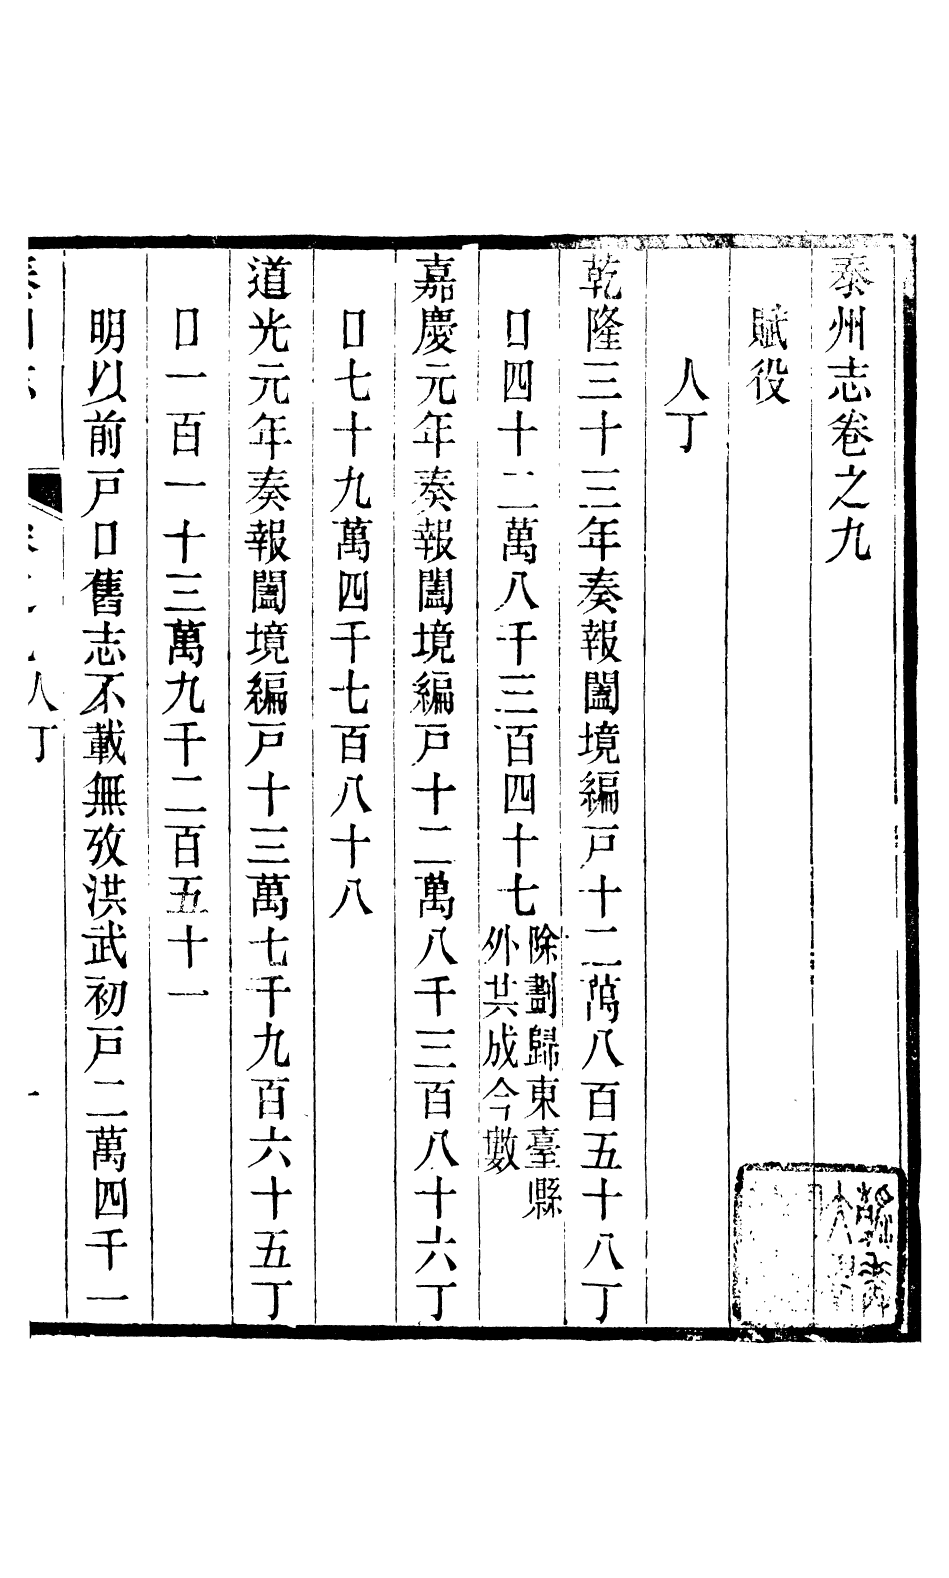 泰州志卷之九
賦役
人丁
乾隆三十三年奏報闔境編戸十二萬八百五十八丁
口四十二萬八千三百四十七除劃歸東臺縣
外共成今數
嘉慶元年奏報闔境編戸十二萬八千三百八十六丁
口七十九萬四千七百八十八
道光元年奏報闔境編戸十三萬七千九百六十五丁
口一百一十三萬九千二百五十一
明以前戸口舊志不載無攷洪武初戸二萬四千一
人丁
一